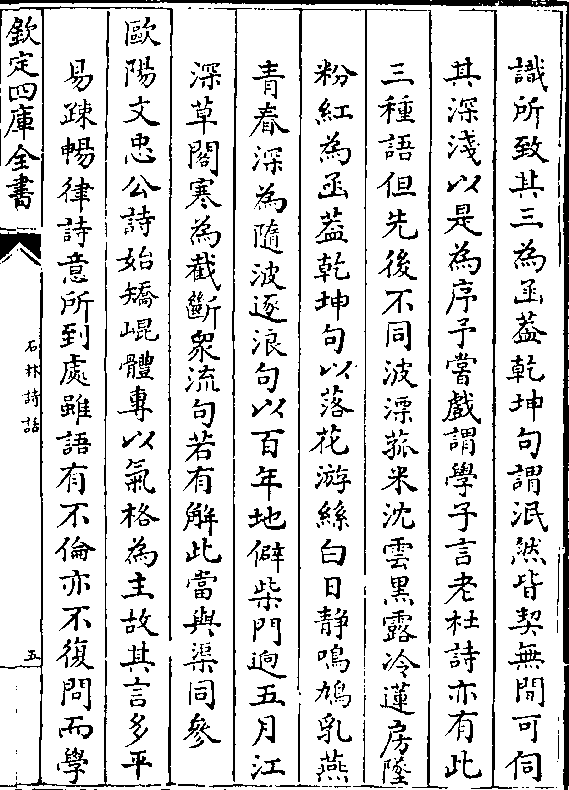 識所致其三為函葢乾坤句謂泯然皆契無間可伺
其深淺以是為序予嘗戲謂學子言老杜詩亦有此
三種語但先後不同波漂菰米沈雲黒露冷蓮房墜
粉紅為函葢乾坤句以落花游絲白日静鳴鳩乳燕
青春深為隨波逐浪句以百年地僻柴門逈五月江
深草閣寒為截斷衆流句若有解此當與渠同參
歐陽文忠公詩始矯崐體專以氣格為主故其言多平
易疎暢律詩意所到處雖語有不倫亦不復問而學
欽定四庫全書
石林詩話
五